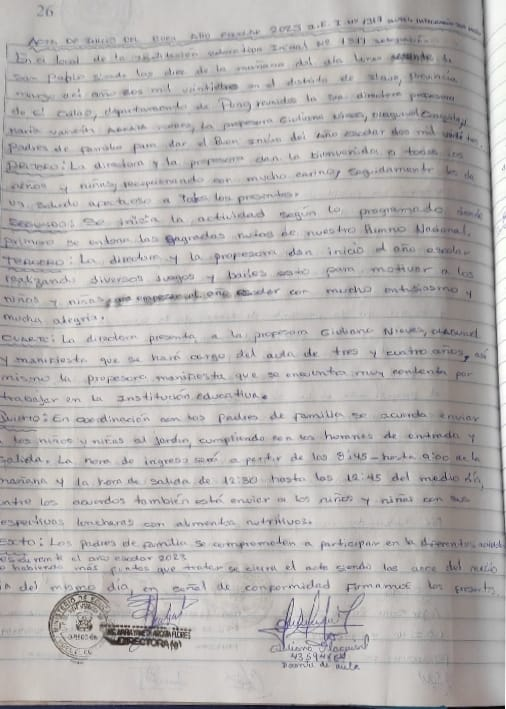 26
ACTA DE INICIO DEL BUEN AÑO ESCOLAR 2023 I.E.I N° 1317
En el local de la institución educativa Inicial N° 1317
San Pablo siendo las diez de la mañana del día lunes de
marzo del año dos mil veintitres en el distrito de Ilave, provincia
de el Collao, departamento de Puno reunidos la Sra. directora profesora
María la profesora Giuliana Nieves,
Padres de familia para dar el Buen inicio del año escolar dos mil
PRIMERO: La directora y la profesora dan la bienvenida a todos los
niños y niñas, con mucho cariño, seguidamente les da
un saludo afectuoso a todos los presentes.
SEGUNDO: Se inicia la actividad según lo programado donde
primero se entona las sagradas notas de nuestro Himno Nacional.
TERCERO: La directora y la profesora dan inicio el año escolar
realizando diversos juegos y bailes esto para motivar a los
niños y niñas, año escolar con mucho entusiasmo y
mucha alegría.
CUARTO: La directora presenta a la profesora Giuliana Nieves,
y manifiesta que se hará cargo del aula de tres y cuatro años, así
mismo la profesora manifiesta que se encuentra muy contenta por
trabajar en la Institución educativa.
QUINTO: En coordinación con los Padres de familia se acuerda enviar
a los niños y niñas al Jardín, cumpliendo con los horarios de entrada y
salida. La hora de ingreso será a partir de las 8:45 - hasta 9:00 de la
mañana y la hora de salida de 12:30 hasta las 12:45 del medio día,
entre los acuerdos también está enviar a los niños y niñas con sus
respectivas loncheras con alimentos nutritivos.
SEXTO: Los Padres de familia se comprometen a participar en la diferentes
durante el año escolar 2023
No habiendo más puntos que tratar se cierra el acta siendo las doce del medio
día del mismo día, en señal de conformidad firmamos los presentes.
DIRECTORA (e)
Giuliana
Docente de aula